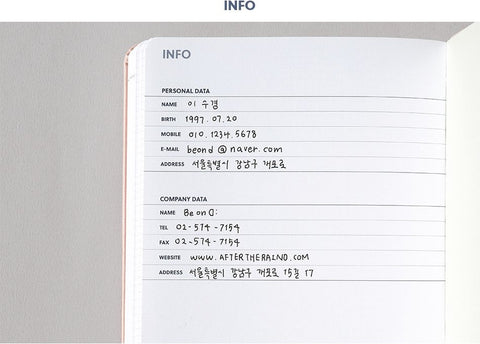 INFO
INFO
PERSONAL DATA
NAME 이 수경
BIRTH 1997. 07. 20
MOBILE 010. 1234. 5678
E-MAIL beond @ naver. com
ADDRESS 서울특별시 강남구 개포로
COMPANY DATA
NAME Be on D:
TEL 02-574-7154
FAX 02-574-7154
WEBSITE WWW.AFTERTHERAIND.COM
ADDRESS 서울특별시 강남구 개포로 15길 17